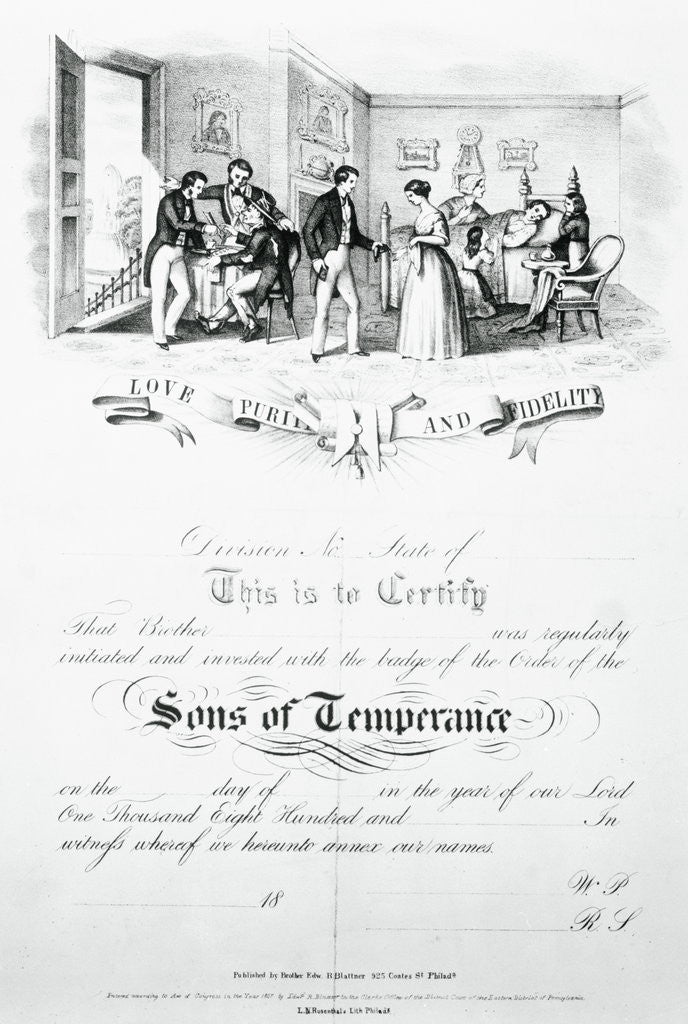 LOVE PURIT AND FIDELITY
Division No. State of
This is to Certify
That Brother was regularly
initiated and invested with the badge of the Order of the
Sons of Temperance
on the day of in the year of our Lord
One Thousand Eight Hundred and In
witneſs whereof we hereunto annex our names.
18 W. P.
R. S.
Published by Brother Edw. R Blattner 925 Coates St. Philada.
Entered according to Act of Congress in the Year 1857 by Edwd. R. Blattner in the Clerks Office of the District Court of the Eastern District of Pennsylvania
L.N. Rosenthal's Lith Philada.